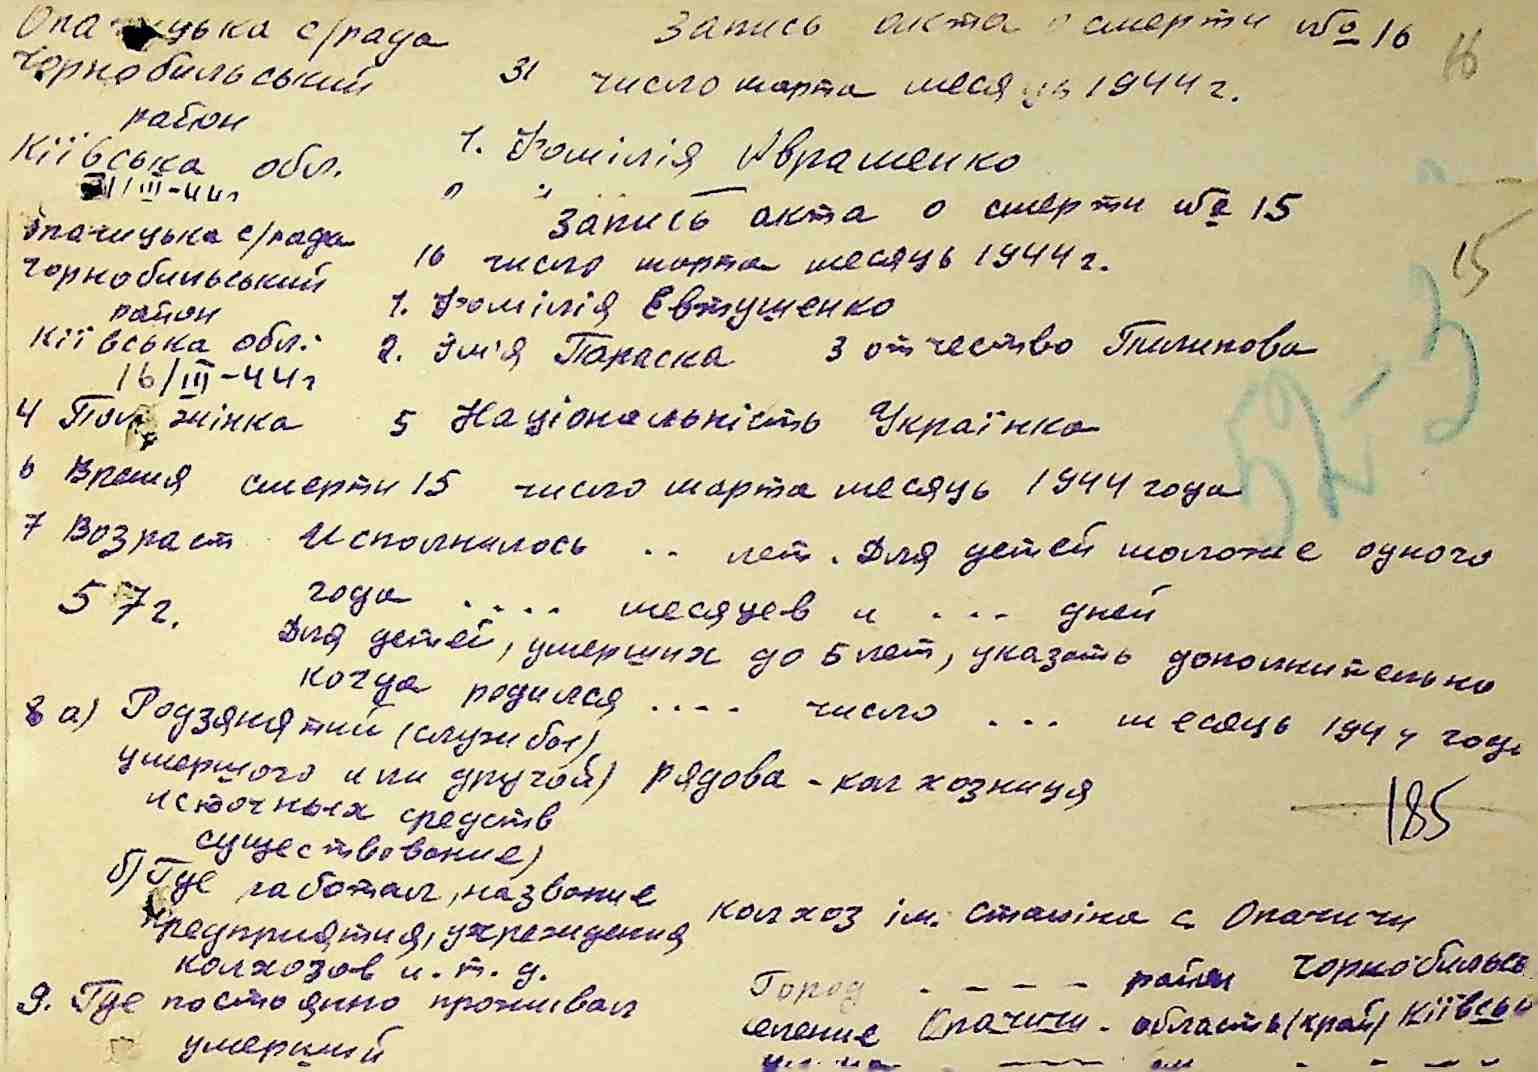 Опачицька с/рада
Чорнобильський
район
Київська обл.
31/III-44г
Запись акта о смерти № 16
16
31 число марта месяць 1944г.
1. Фомілія Аврашенко
Опачицька с/рада
Чорнобильський
район
Київська обл.
16/III-44г
Запись акта о смерти № 15
15
16 число марта месяць 1944г.
1. Фомілія Евтушенко
2. Ім'я Параска 3 отчество Пилипова
4 Пол жінка 5 Національність Українка
6 Время смерти 15 число марта месяць 1944 года
7 Возраст Исполнилось .. лет. Для детей моложе одного
57г. года .... месяцев и ... дней
Для детей, умерших до 5 лет, указать дополнительно
когда родился .... число ... месяць 194 г
8 а) (службы)
умершого или другой) рядова - колхозниця
источных средств
существование)
185
б) Где работал, название
предприятия, учреждения
колхозов и.т.д.
колхоз ім. Сталіна с. Опачичи
9. Где постоянно проживал
умерший
Город - - - - район Чорнобильсь
еление Опачичи - область (край) Київсь